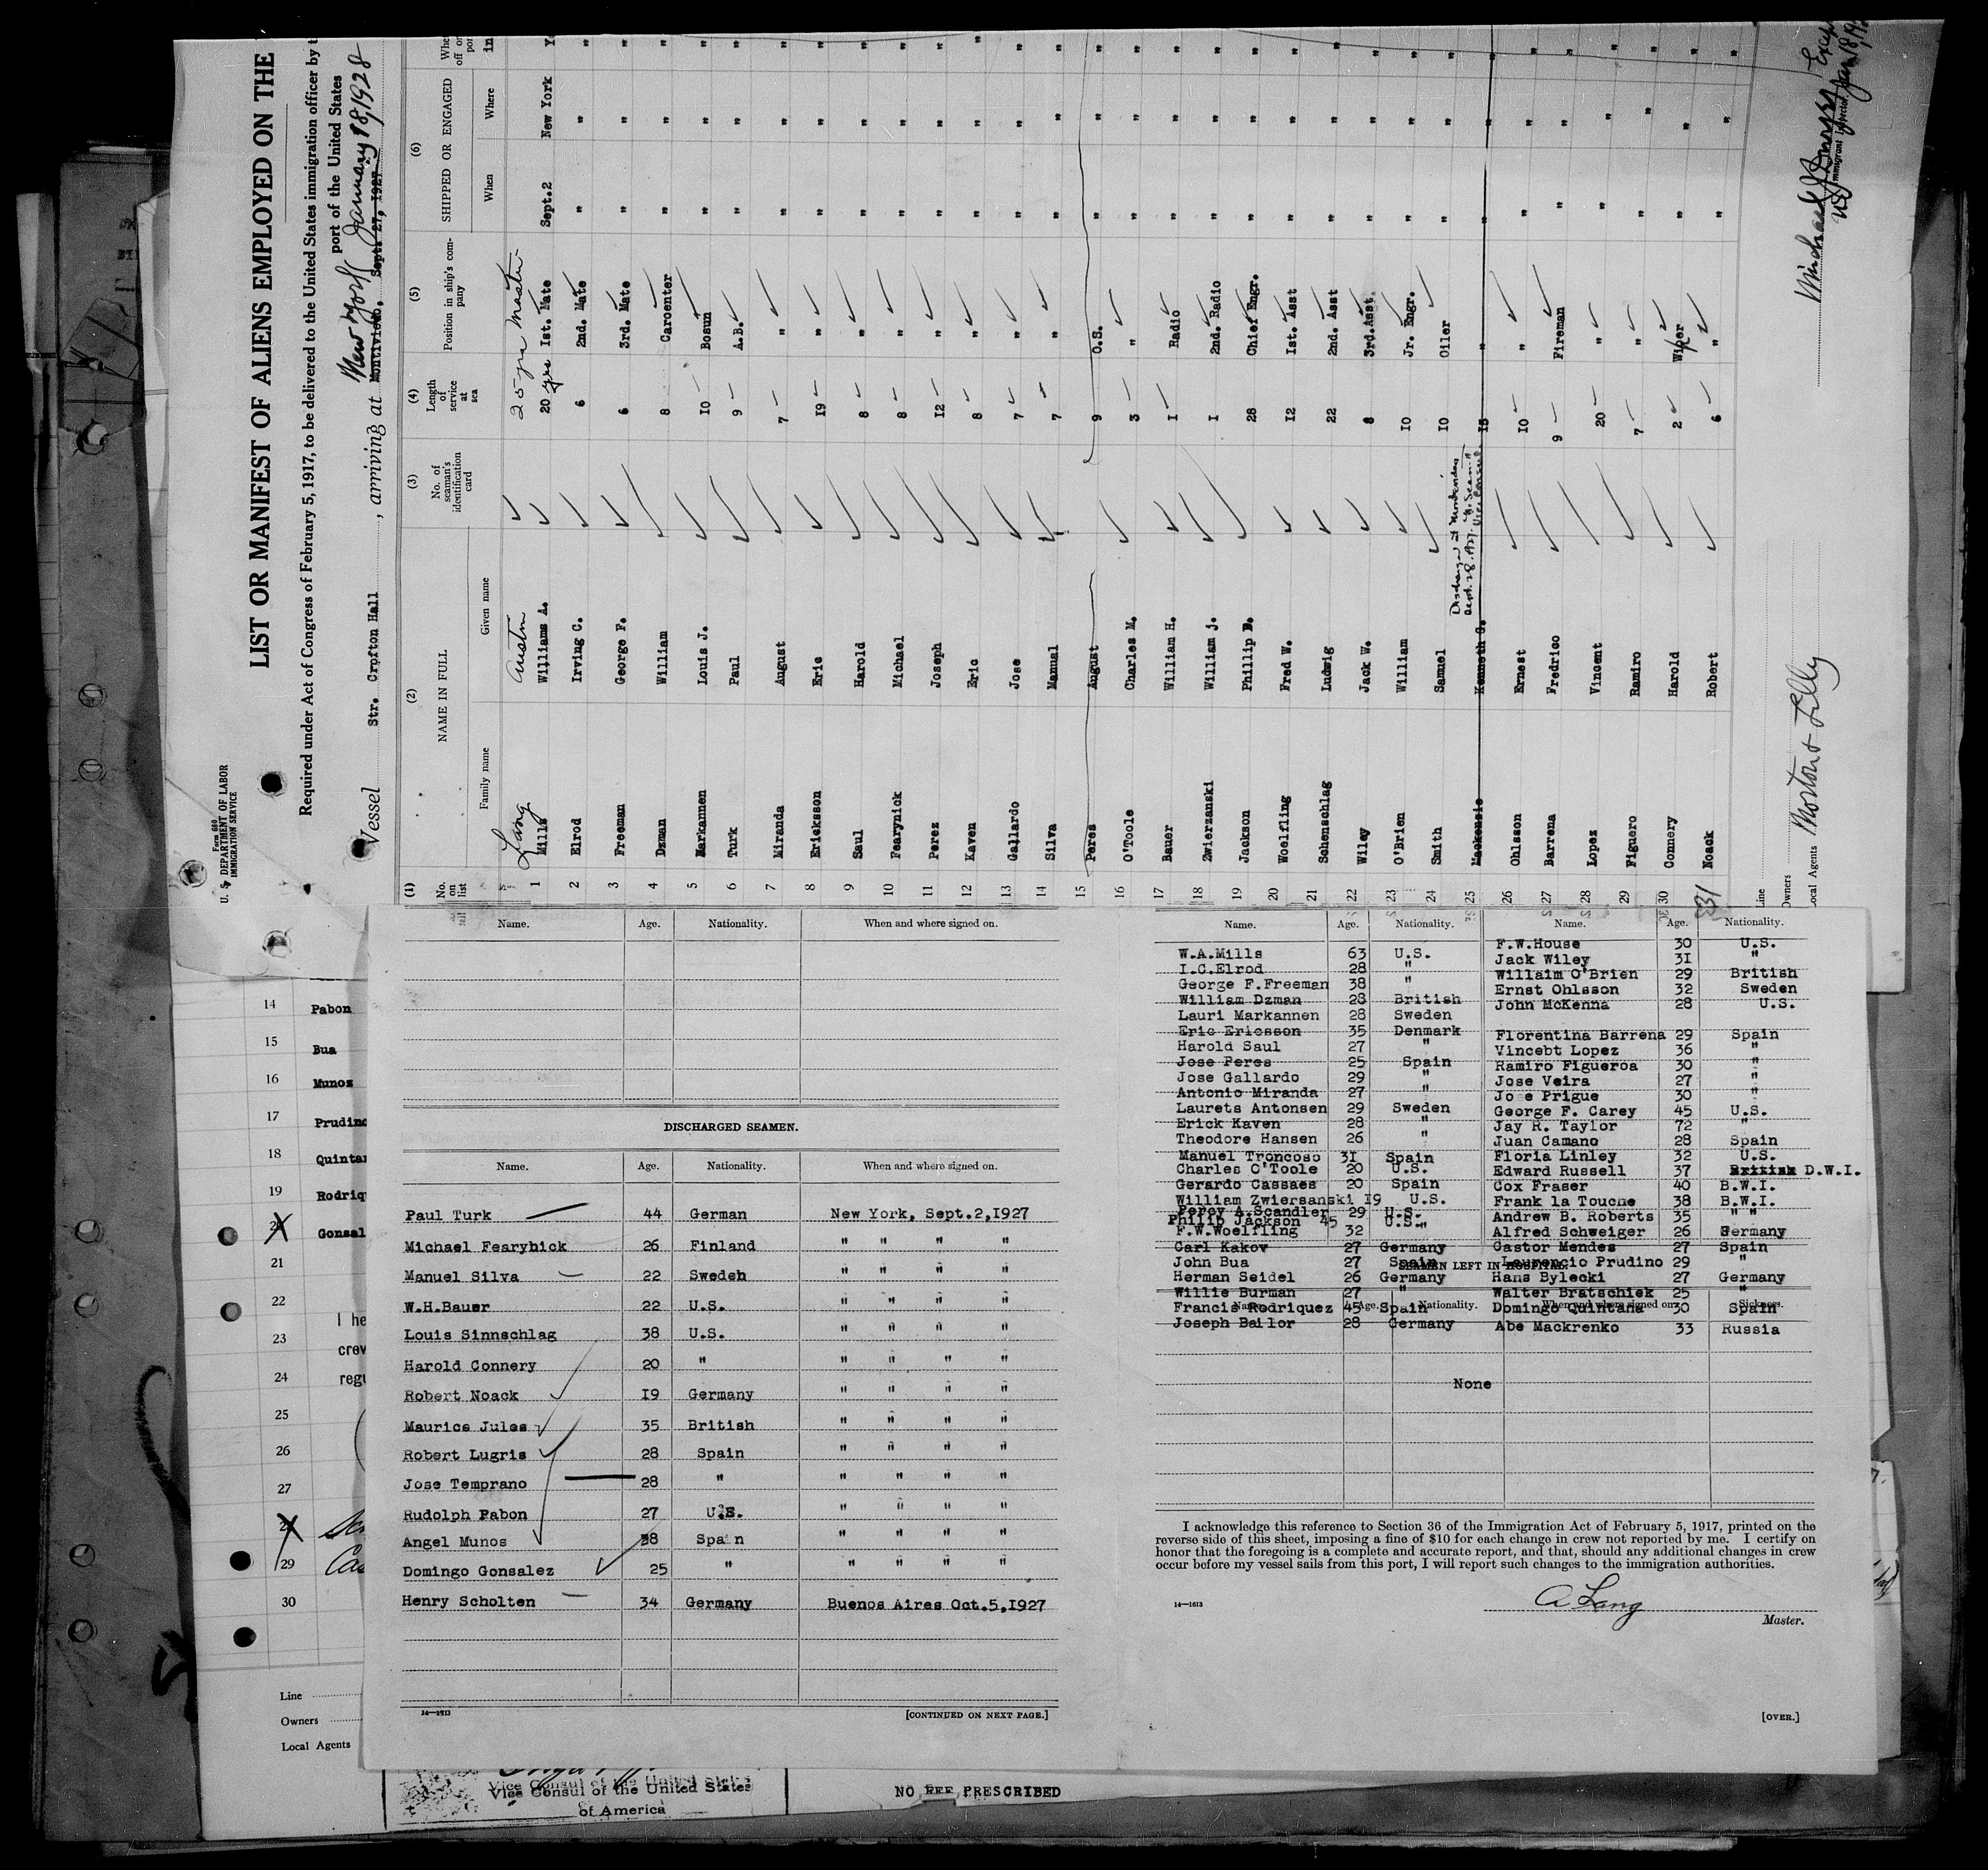 Form 680
U. S. DEPARTMENT OF LABOR
IMMIGRATION SERVICE
LIST OR MANIFEST OF ALIENS EMPLOYED ON THE
Required under Act of Congress of February 5, 1917, to be delivered to the United States immigration officer by
port of the United States
New York January 18, 1928
Vessel Str. Crofton Hall, arriving at Montivideo. Sept. 27, 1927
(1) (2) (3) (4) (5) (6)
No. on list
NAME IN FULL
Family name Given name
No. of seaman's identification card
Length of service at sea
Position in ship's company
SHIPPED OR ENGAGED
When Where
Lang Austin 25 yrs Master
1 Mills Williams A. 20 yrs Ist. Mate Sept.2 New York
2 Elrod Irving C. 6 2nd. Mate " " "
3 Freeman George F. 6 3rd. Mate " " "
4 Dzman William 8 Carpenter " " "
5 Markannen Louis J. IO Bosun " " "
6 Turk Paul 9 A.B. " " "
7 Miranda August 7 " " " "
8 Ericksson Eric I9 " " " "
9 Saul Harold 8 " " " "
10 Fearynick Michael 8 " " " "
11 Perez Joseph I2 " " " "
12 Kaven Eric 8 " " " "
13 Gallardo Jose 7 " " " "
14 Silva Manual 7 " " " "
15 Peres August 9 O.S. " " "
16 O'Toole Charles M. 3 " " " "
17 Bauer William H. I Radio " " "
18 Zwierzanski William j. I 2nd. Radio " " "
19 Jackson Phillip B. 28 Chief Engr. " " "
20 Woelfling Fred W. I2 Ist. Asst " " "
21 Schenschlag Ludwig 22 2nd. Asst " " "
22 Wiley Jack W. 8 3rd. Asst. " " "
23 O'Brien William IO Jr. Engr. " " "
24 Smith Samuel IO Oiler " " "
Discharged at Montevideo
Sept. 28. 1927.
Vice Consul
25 Mackenzie Kenneth G. I5 " " " "
26 Ohlsson Ernest IO " " " "
27 Barrena Fredrico 9 Fireman " " "
28 Lopez Vincent 20 " " " "
29 Figuero Ramiro 7 " " " "
30 Connory Harold 2 Wiper " " "
31 Noack Robert 6 " " " "
Line
Owners
Local Agents Morton & Lilly
Immigrant Inspector.
14 Pabon
15 Bua
16 Munos
17 Prudino
18
19
20
21
22
23
24
25
26
27
29
30
I he
crew
regu
Line
Owners
Local Agents
Name. Age. Nationality. When and where signed on.
DISCHARGED SEAMEN.
Name. Age. Nationality. When and where signed on.
Paul Turk 44 German New York, Sept.2,I927
Michael Fearyhick 26 Finland " " " "
Manuel Silva 22 Sweden " " " "
W.H.Bauer 22 U.S. " " " "
Louis Sinnschlag 38 U.S. " " " "
Harold Connery 20 " " " " "
Robert Noack I9 Germany " " " "
Maurice Jules 35 British " " " "
Robert Lugris 28 Spain " " " "
Jose Temprano 28 " " " " "
Rudolph Pabon 27 U.S. " " " "
Angel Munos 38 Spain " " " "
Domingo Gonsalez 25 " " " " "
Henry Scholten 34 Germany Buenos Aires Oct.5,I927
[CONTINUED ON NEXT PAGE.]
Name. Age. Nationality. Name. Age. Nationality.
W.A.Mills 63 U.S.
I.C.Elrod 28 "
George F.Freeman 38 "
William Dzman 28 British
Lauri Markannen 28 Sweden
Eric Ericsson 35 Denmark
Harold Saul 27 "
Jose Peres 25 Spain
Jose Gallardo 29 "
Antonio Miranda 27 "
Laurets Antonsen 29 Sweden
Erick Kaven 28 "
Theodore Hansen 26 "
Manuel Troncoso 3I Spain
Charles O'Toole 20 U.S.
Gerardo Cassaes 20 Spain
William Zwiersanski I9 U.S.
Percy A.Scandler 29 U.S.
Philip Jackson 45 U.S.
F.W.Woelfling 32 "
Carl Kakov 27 Germany
John Bua 27 Spain
Herman Seidel 26 Germany
Willie Burman 27 "
Francis Rodriquez 45 Spain
Joseph Bailor 28 Germany
F.W.House 30 U.S.
Jack Wiley 3I "
Willaim O'Brien 29 British
Ernst Ohlsson 32 Sweden
John McKenna 28 U.S.
Florentina Barrena 29 Spain
Vincebt Lopez 36 "
Ramiro Figueroa 30 "
Jose Veira 27 "
Jose Prigue 30 "
George F. Carey 45 U.S.
Jay R. Taylor 72 "
Juan Camano 28 Spain
Floria Linley 32 U.S.
Edward Russell 37 British D.W.I.
Cox Fraser 40 B.W.I.
Frank la Touche 38 B.W.I.
Andrew B. Roberts 35 " "
Alfred Schweiger 26 Germany
Castor Mendes 27 Spain
Laurencio Prudino 29 "
Hans Bylecki 27 Germany
Walter Bratschiek 25 "
Domingo Quintana 30 Spain
Abe Mackrenko 33 Russia
SEAMEN LEFT IN HOSPITAL.
Name. Age. Nationality. When and where signed on. Sickness.
None
I acknowledge this reference to Section 36 of the Immigration Act of February 5, 1917, printed on the
reverse side of this sheet, imposing a fine of $10 for each change in crew not reported by me. I certify on
honor that the foregoing is a complete and accurate report, and that, should any additional changes in crew
occur before my vessel sails from this port, I will report such changes to the immigration authorities.
14—1613
A Lang
Master.
[OVER.]
Vice Consul of the United States
of America
NO FEE PRESCRIBED